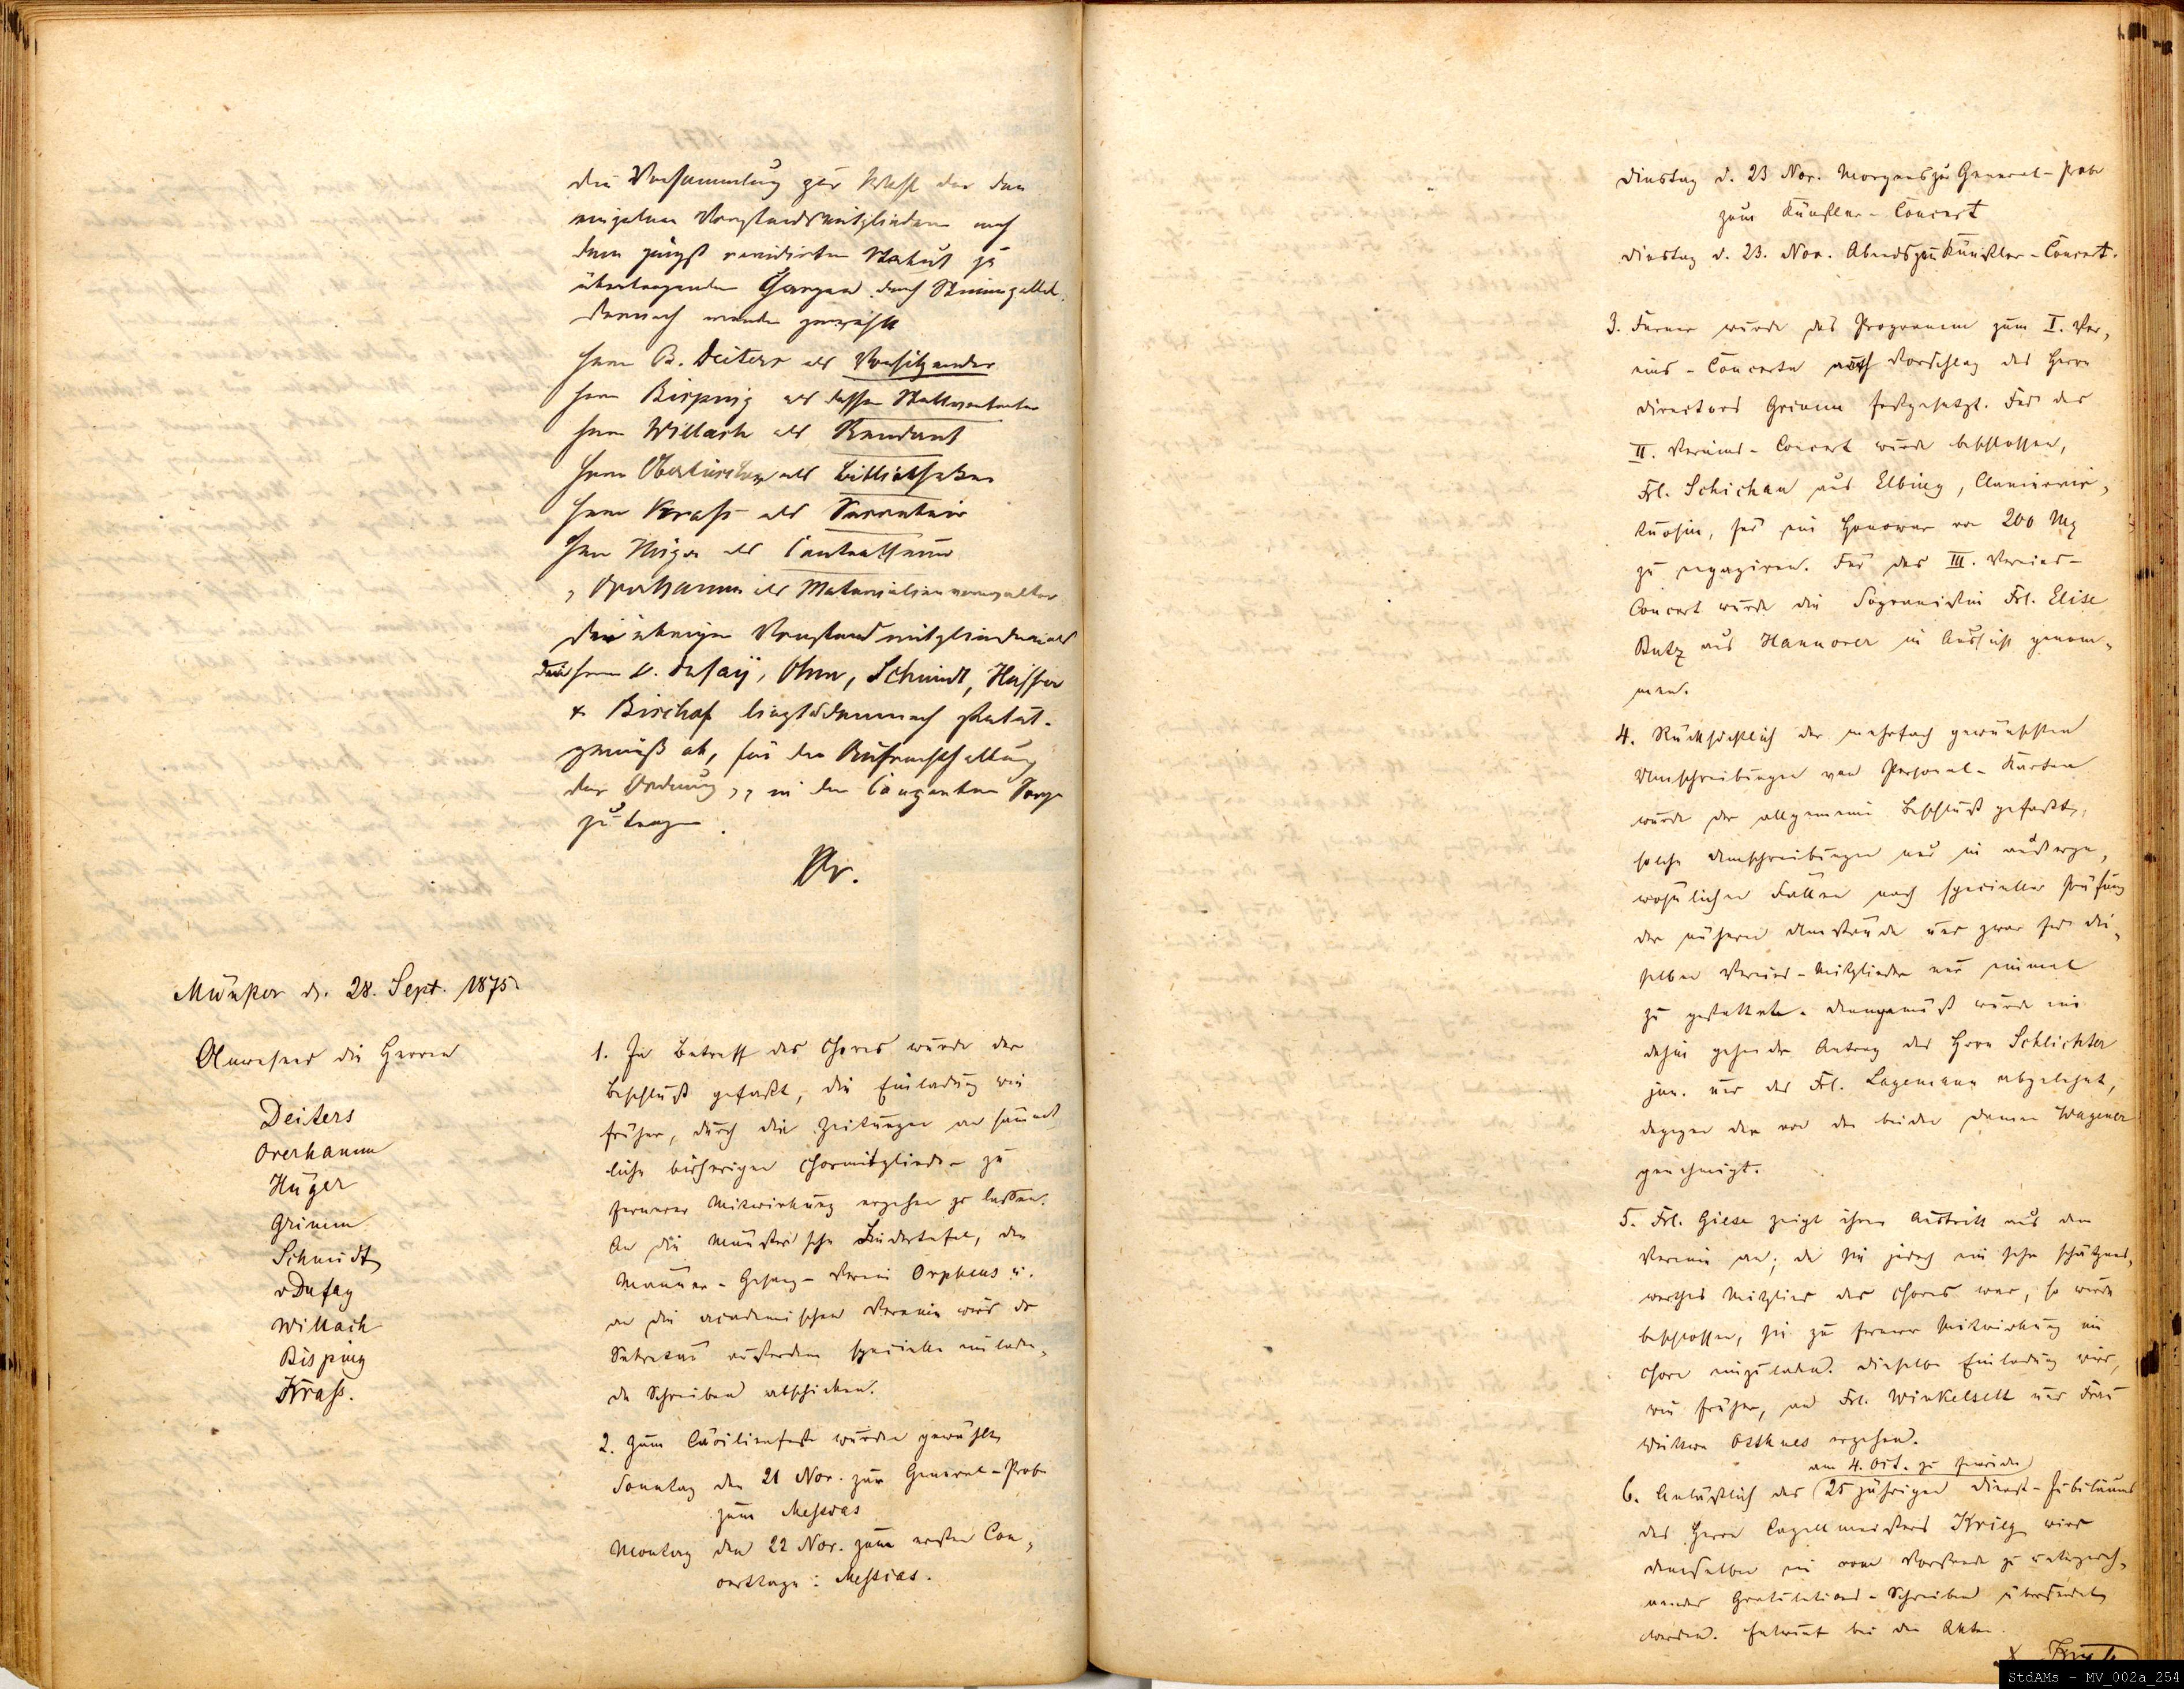 die Versammlung zur Wahl der den
einzelnen Vorstandsmitgliedern nach
dem jüngst revidirten Statut zu
übertragenden Chargen durch Stimmzettel.
Darnach wurden gewählt
Herr B. Deiters als Vorsitzender
Herr Bisping als dessen Stellvertreter
Herr Willach als Rendant
Herr als Bibliothekar
Herr Krass als Secretair
Herr Hüger als Controlleur
" Overhamm als Materialienverwalter
Die übrigen Vorstandmitglieder als
die Herrn v. Dufay, Ohm, Schmidt, Hüffer
& Bischof liegt es demnach statut-
gemäß ob, für die Aufrechthaltung
der Ordnung in den Concerten Sorge
zu tragen.
Kr.
Münster d. 28. Sept. 1875.
Anwesend die Herren
Deiters
Overhamm
Hüger
Grimm
Schmidt
vDufay
Willach
Bisping
Krass.
1. In Betreff des Chores wurde der
Beschluß gefaßt, die Einladung wie
früher, durch die Zeitungen an sämmt
liche bisherigen Chormitglieder zu
fernerer Mitwirkung ergehen zu lassen.
An die Münster'sche Liedertafel, den
Männer-Gesang-Verein Orpheus u.
an die academischen Vereine wird der
Sekretär außerdem specielle einladen-
de Schreiben abschicken.
2. Zum Cäcilienfeste wurden gewählt
Sonntag den 21 Nov. zur General-Probe
zum Messias
Montag den 22 Nov. zum ersten Con-
certtage: Messias.
Dinstag d. 23 Nov. Morgens zu General-Probe
zum Künstler-Concert
Dinstag d. 23. Nov. Abends zu Künstler-Concert.
3. Ferner wurde das Programm zum I. Ver-
eins-Concerte nach Vorschlag des Herrn
Directors Grimm festgesetzt. Für das
II. Vereins-Concert wurde beschlossen,
Frl. Schichau aus Elbing, Claviervir-
tuosin, für ein Honorar von 200 Mg
zu engagiren. Für das III. Vereins-
Concert wurde die Sopranistin Frl. Elise
Butz aus Hannover in Aussicht genom-
men.
4. Rücksichtlich der mehrfach gewünschten
Umschreibungen von Personal-Karten
wurde der allgemeine Beschluß gefaßt,
solche Umschreibungen nur in außerge-
wöhnlichen Fällen nach specieller Prüfung
der nähern Umstände und zwar für die-
selben Vereins-Mitglieder nur einmal
zu gestatten. Demgemäß wurde ein
dahin gehender Antrag des Herrn Schlichter
jun. und des Frl. Lagemann abgelehnt,
dagegen der von den beiden Damen Wagener
genehmigt.
5. Frl. Giese zeigt ihren Austritt aus dem
Verein an; da sie jedoch ein sehr schätzens-
werthes Mitglied des Chores war, so wurde
beschlossen, sie zu ferner Mitwirkung im
Chore einzuladen. Dieselbe Einladung wird,
wie früher, an Frl. Winkelsett und Frau
Wittwe Osthues ergehen.
am 4. Oct. zu feiernden
6. Anläßlich des 25jährigen Dienst-Jubiläums
des Herrn Capellmeisters Krieg wird
demselben ein vom Vorstande zu unterzeich-
nendes Gratulations-Schreiben übersendet
werden. Entwurf bei den Akten.
StdAMs - MV_002a_254